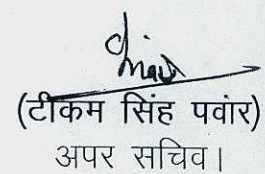 (टीकम सिंह पवांर)
अपर सचिव।